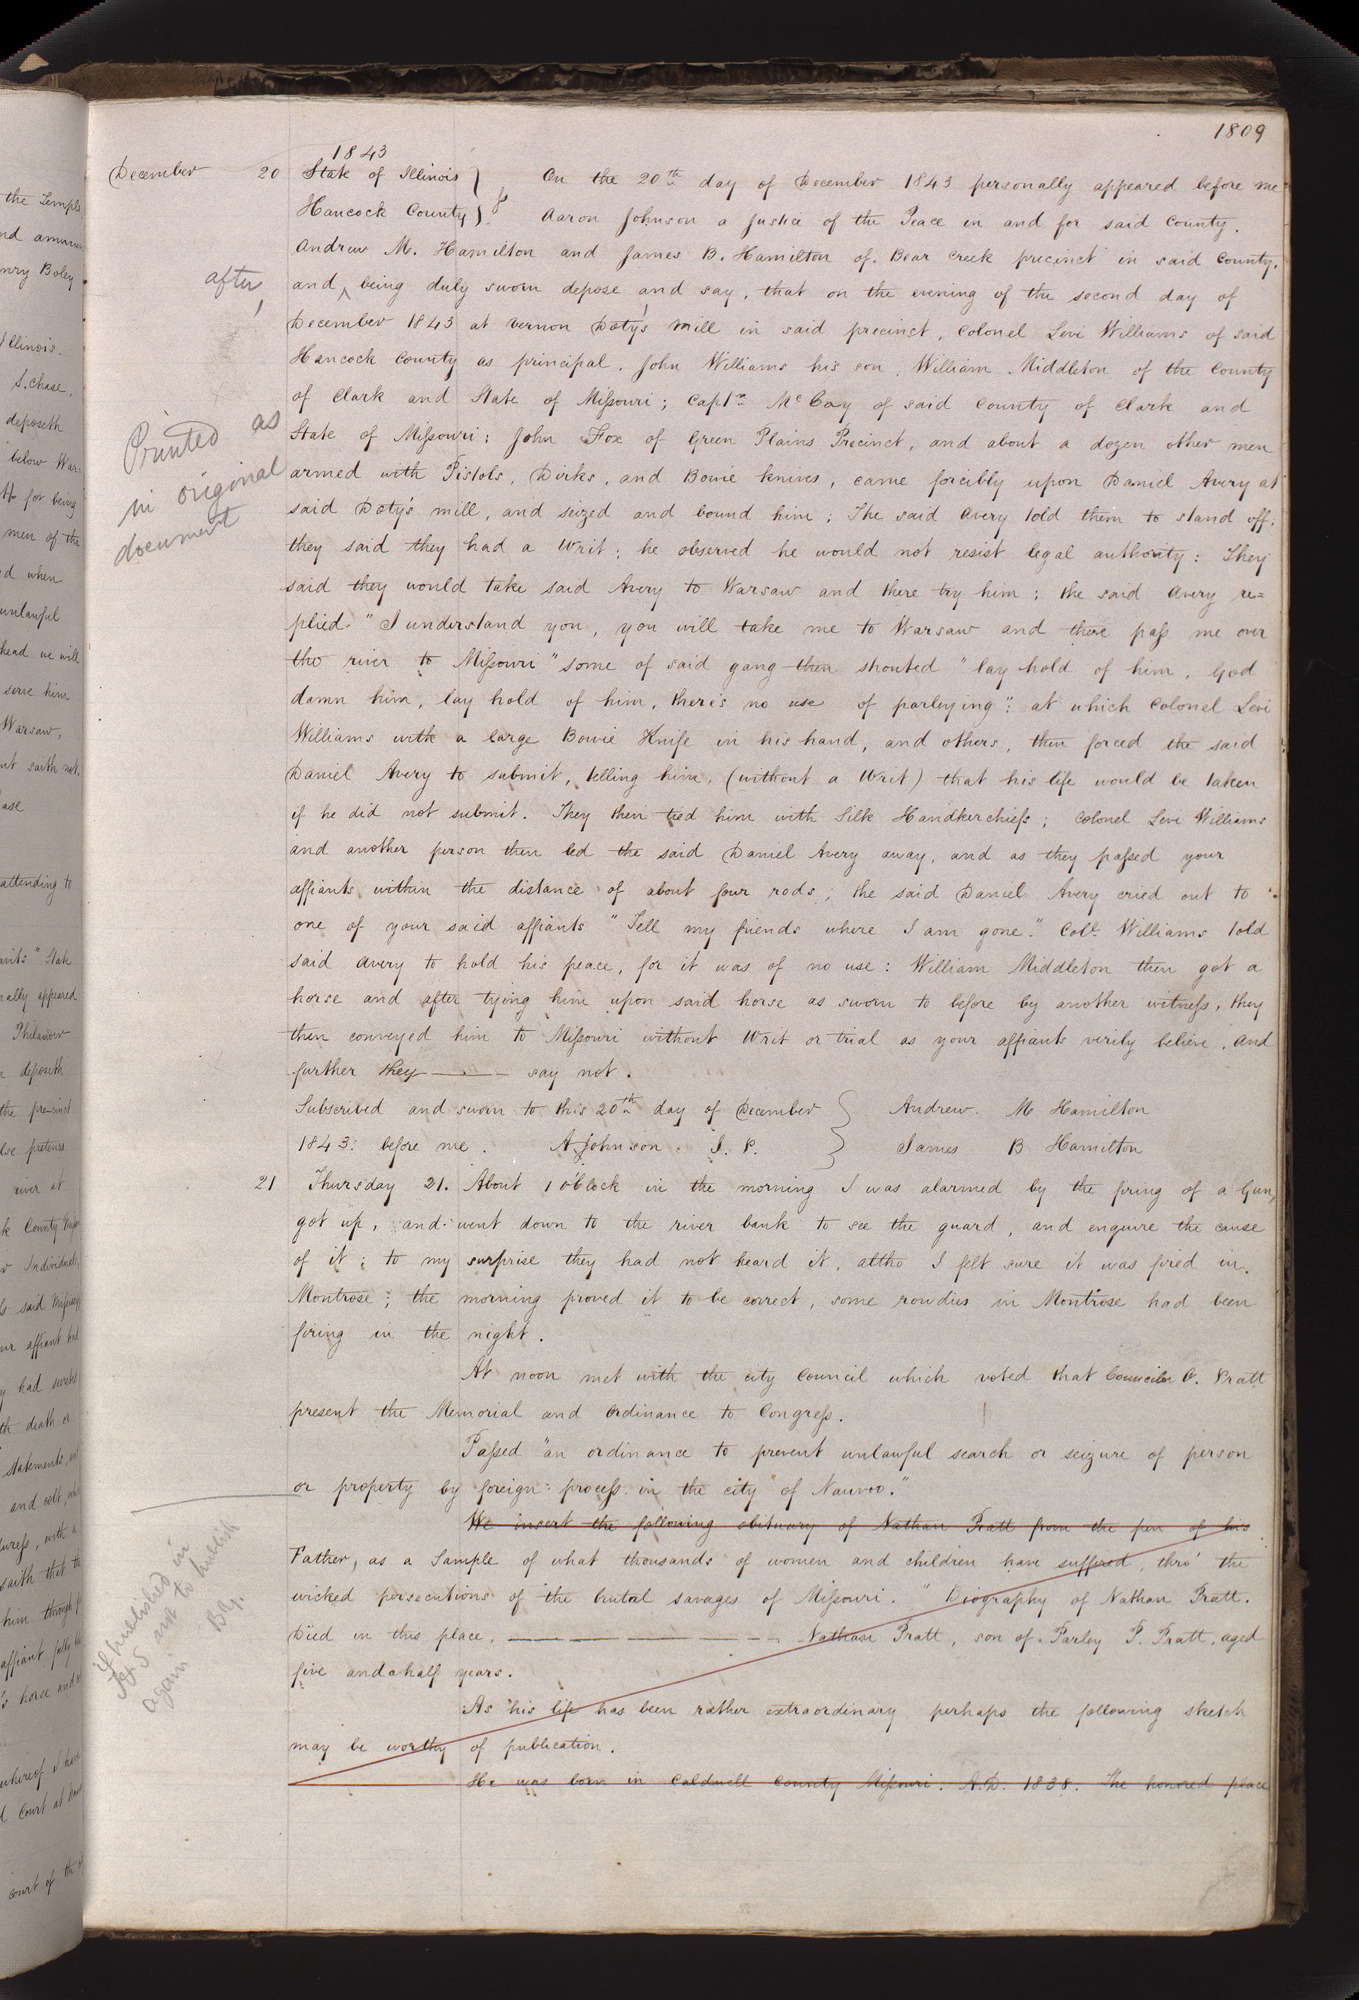 1809
1843
December 20 State of Illinois } On the 20th day of December 1843 personally appeared before me
Hancock County } Aaron Johnson a Justice of the Peace in and for said County.
Andrew M. Hamilton and James B. Hamilton of Bear Creek precinct in said County,
after
and ^ being duly sworn depose and say, that on the evening of the second day of
December 1843 at Vernon Doty's Mill in said precinct, Colonel Levi Williams of said
Hancock County as principal, John Williams his son, William Middleton of the County
of Clark and State of Missouri; Captn McCoy of said County of Clark and
State of Missouri; John Fox of Green Plains Precinct, and about a dozen other men
Printed as
in original
document
armed with Pistols, Dirks, and Bowie Knives, came forcibly upon Daniel Avery at
said Doty's mill, and seized and bound him; The said Avery told them to stand off;
they said they had a Writ; he observed he would not resist legal authority: They
said they would take said Avery to Warsaw and there try him; the said Avery re=
plied "I understand you, you will take me to Warsaw and there pass me over
the river to Missouri" some of said gang then shouted "lay hold of him, God
damn him, lay hold of him, there's no use of parleying": at which Colonel Levi
Williams with a large Bowie Knife in his hand, and others, then forced the said
Daniel Avery to submit, telling him, (without a Writ) that his life would be taken
if he did not submit. They then tied him with Silk Handkerchiefs; Colonel Levi Williams
and another person then led the said Daniel Avery away, and as they passed your
affiants within the distance of about four rods; the said Daniel Avery cried out to
one of your said affiants "Tell my friends where I am gone." Coln. Williams told
said Avery to hold his peace, for it was of no use: William Middleton then got a
horse and after tying him upon said horse as sworn to before by another witness, they
then conveyed him to Missouri without Writ or trial as your affiants verily believe. And
further they ——— say not.
Subscribed and sworn to this 20th day of December } Andrew. M Hamilton
1843: before me. A Johnson. J. P. } James B Hamilton
21 Thursday 21. About 1 o'Clock in the morning I was alarmed by the firing of a Gun,
got up, and went down to the river bank to see the guard, and enquire the cause
of it; to my surprise they had not heard it, altho I felt sure it was fired in
Montrose; the morning proved it to be correct, some rowdies in Montrose had been
firing in the night.
At noon met with the city council which voted that Councilor O. Pratt
present the Memorial and Ordinance to Congress.
Passed "an ordinance to prevent unlawful search or seizure of person
or property by foreign process in the city of Nauvoo."
We insert the following obituary of Nathan Pratt from the pen of his
Father, as a Sample of what thousands of women and children have suffered, thro' the
wicked persecutions of the brutal savages of Missouri. "Biography of Nathan Pratt.
Died in this place, —————— Nathan Pratt, son of Parley P. Pratt, aged
five and a half years.
if published in
again
As his life has been rather extraordinary perhaps the following sketch
may be worthy of publication.
He was born in Caldwell County Missouri. A.D. 1838. The honored place